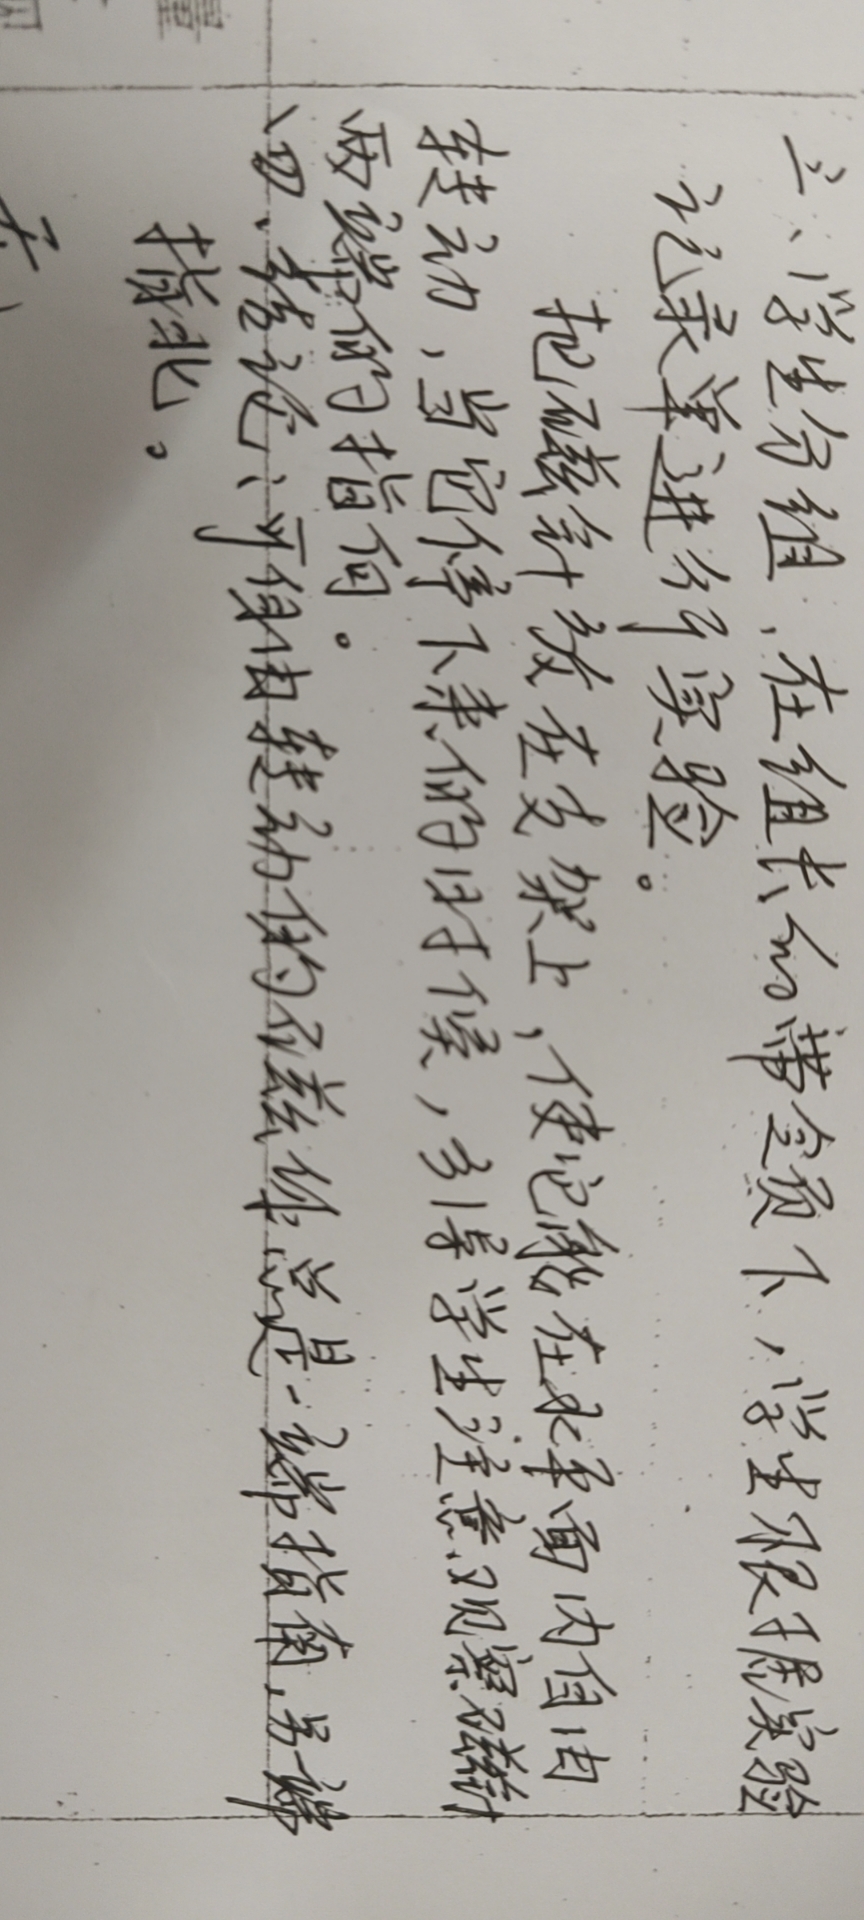 三、学生分组,在组长的带领下,学生根据实验
记录单进行实验。
把磁针放在支架上,使它能在水平面内自由
转动,当它停下来的时候,引导学生注意观察磁针
两端的指向。
四、结论:可自由转动的磁体总是一端指南,另一端
指北。